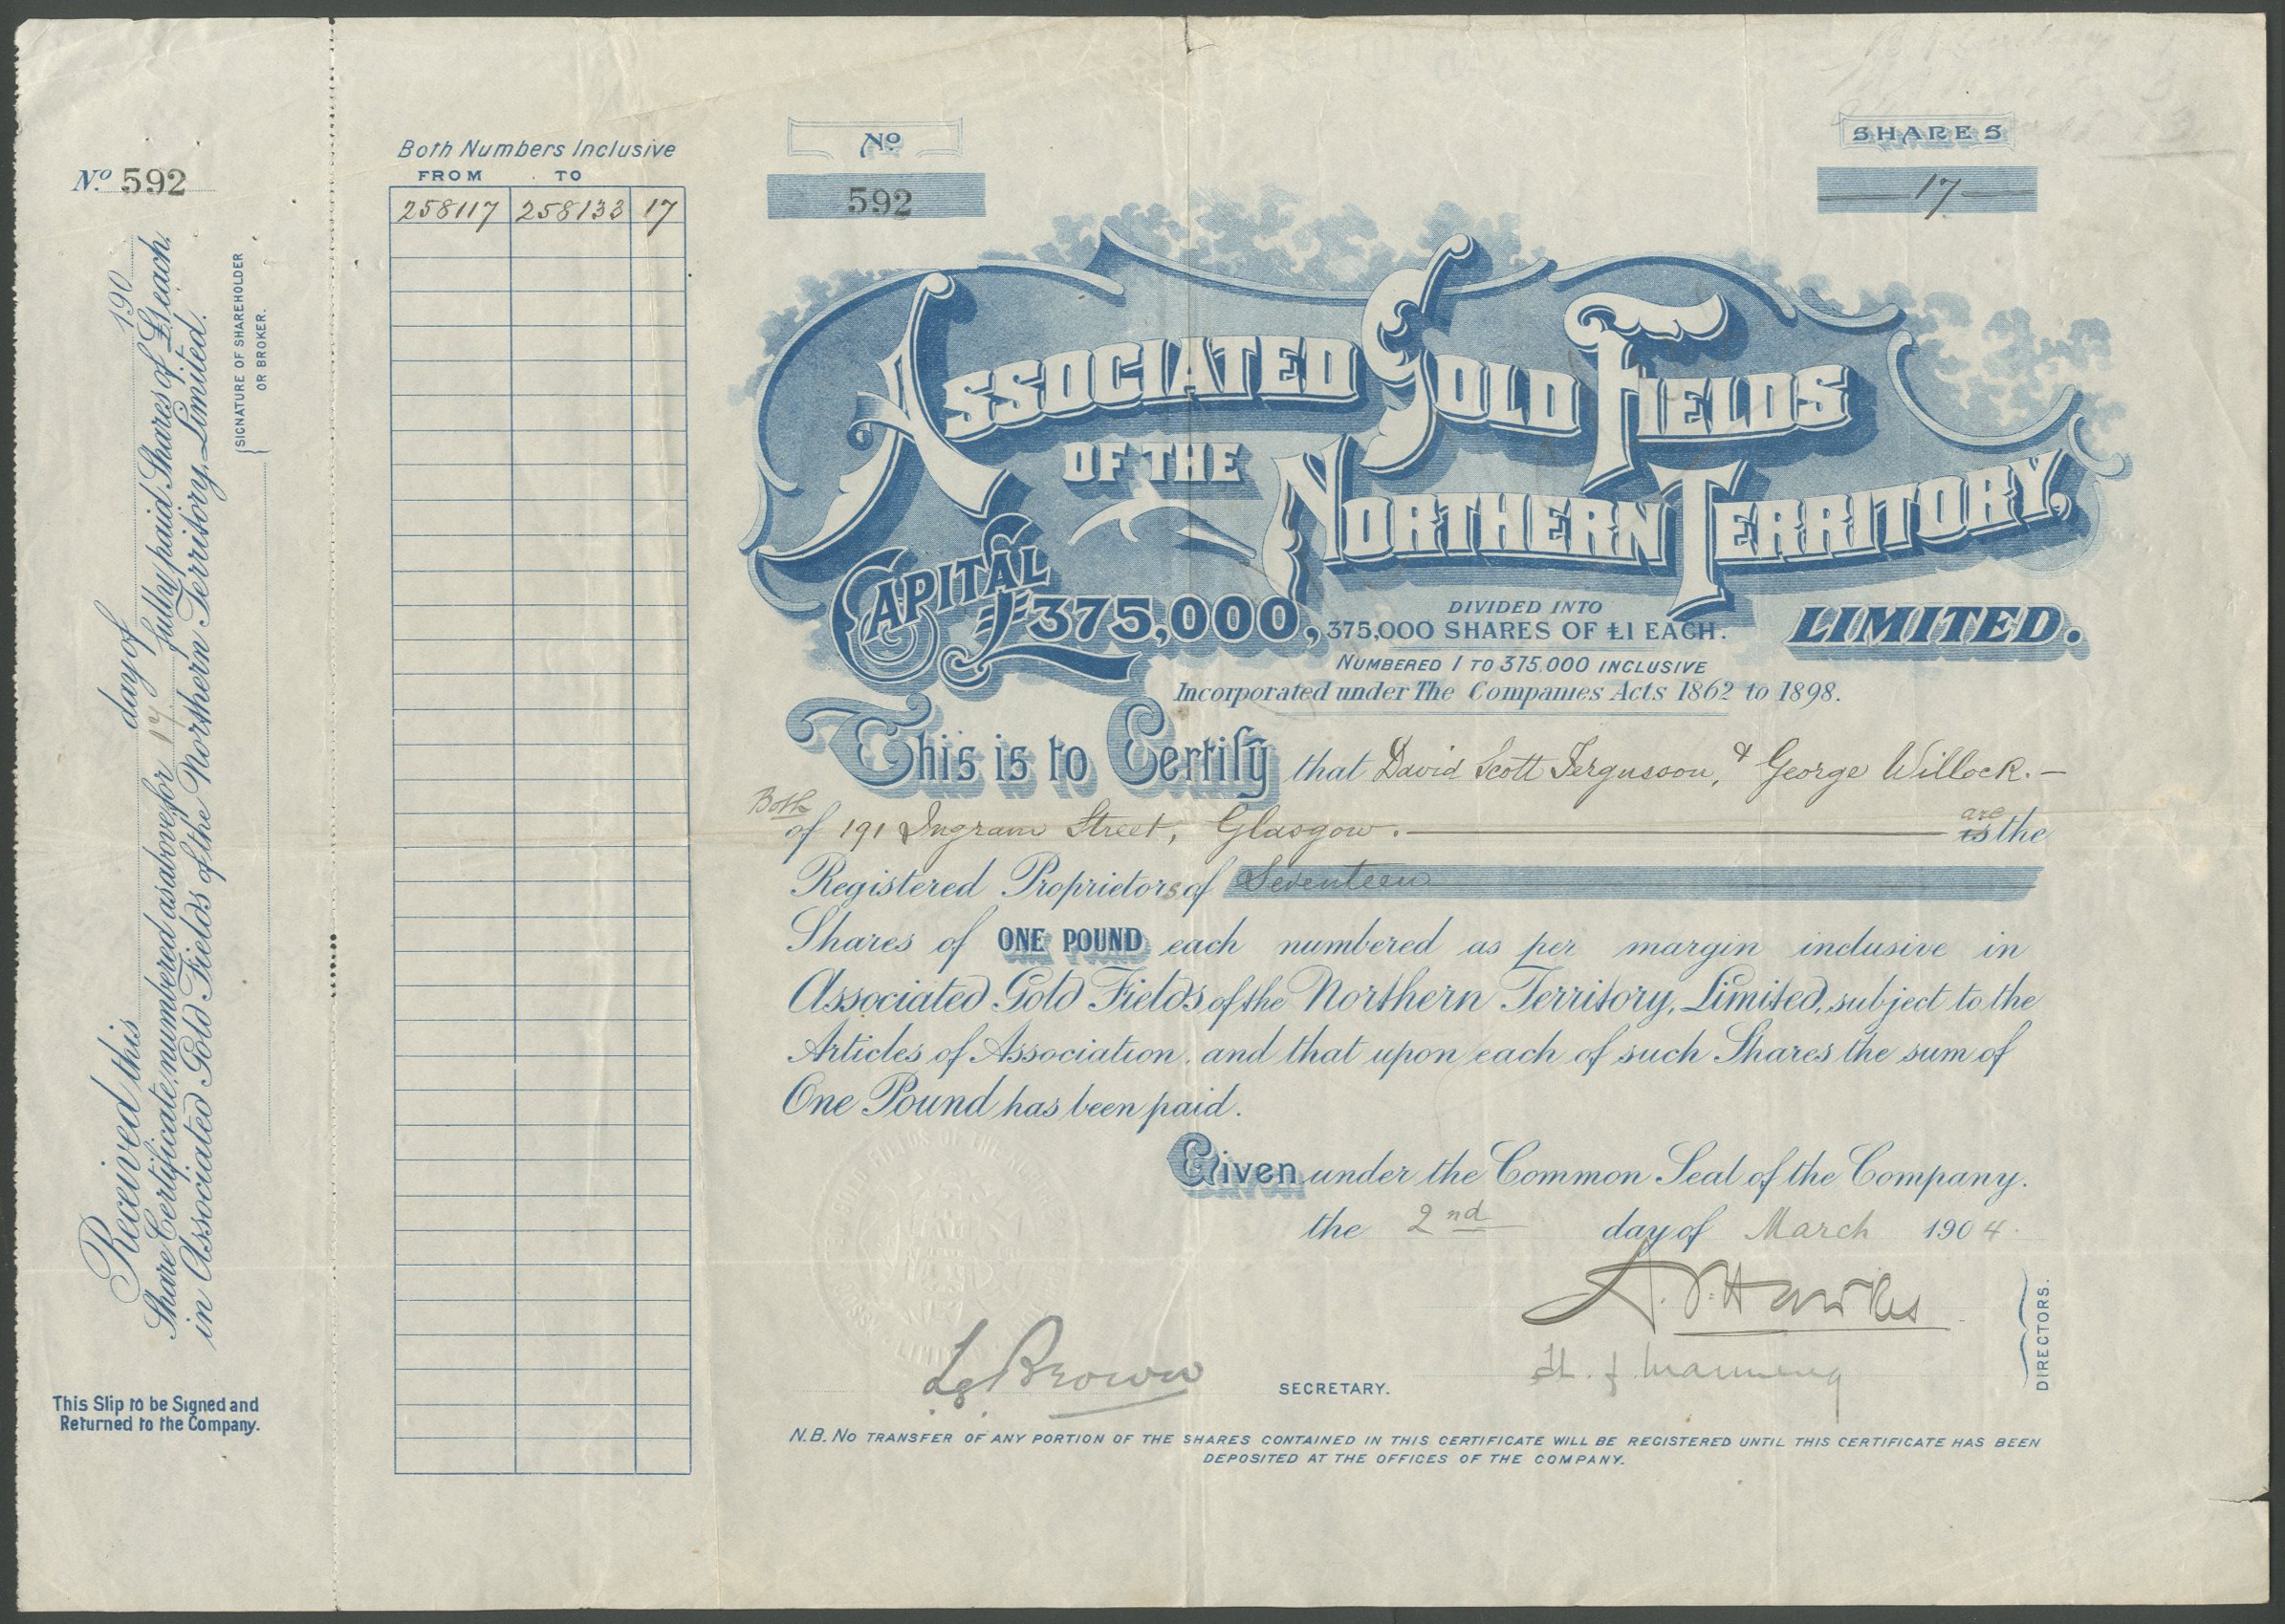 No 592
Received this day of 190
Share Certificate, numbered as above for 17 fully paid Shares of £1 each,
in Associated Gold Fields of the Northern Territory, Limited.
SIGNATURE OF SHAREHOLDER
OR BROKER.
This Slip to be Signed and
Returned to the Company.
Both Numbers Inclusive
FROM TO
258117 258133 17
No
592
SHARES
17
ASSOCIATED GOLD FIELDS
OF THE
NORTHERN TERRITORY,
LIMITED.
CAPITAL
£375,000,
DIVIDED INTO
375,000 SHARES OF £1 EACH.
NUMBERED 1 TO 375,000 INCLUSIVE
Incorporated under The Companies Acts 1862 to 1898.
This is to Certify that David Scott Fergusson, & George Willock.
Both of 191 Ingram Street, Glasgow. is are the
Registered Proprietors of Seventeen
Shares of ONE POUND each numbered as per margin inclusive in
Associated Gold Fields of the Northern Territory, Limited, subject to the
Articles of Association, and that upon each of such Shares the sum of
One Pound has been paid.
Given under the Common Seal of the Company.
the 2nd day of March 1904.
Brown
SECRETARY.
Hawkes
H. J. Manning
DIRECTORS.
N.B. NO TRANSFER OF ANY PORTION OF THE SHARES CONTAINED IN THIS CERTIFICATE WILL BE REGISTERED UNTIL THIS CERTIFICATE HAS BEEN
DEPOSITED AT THE OFFICES OF THE COMPANY.